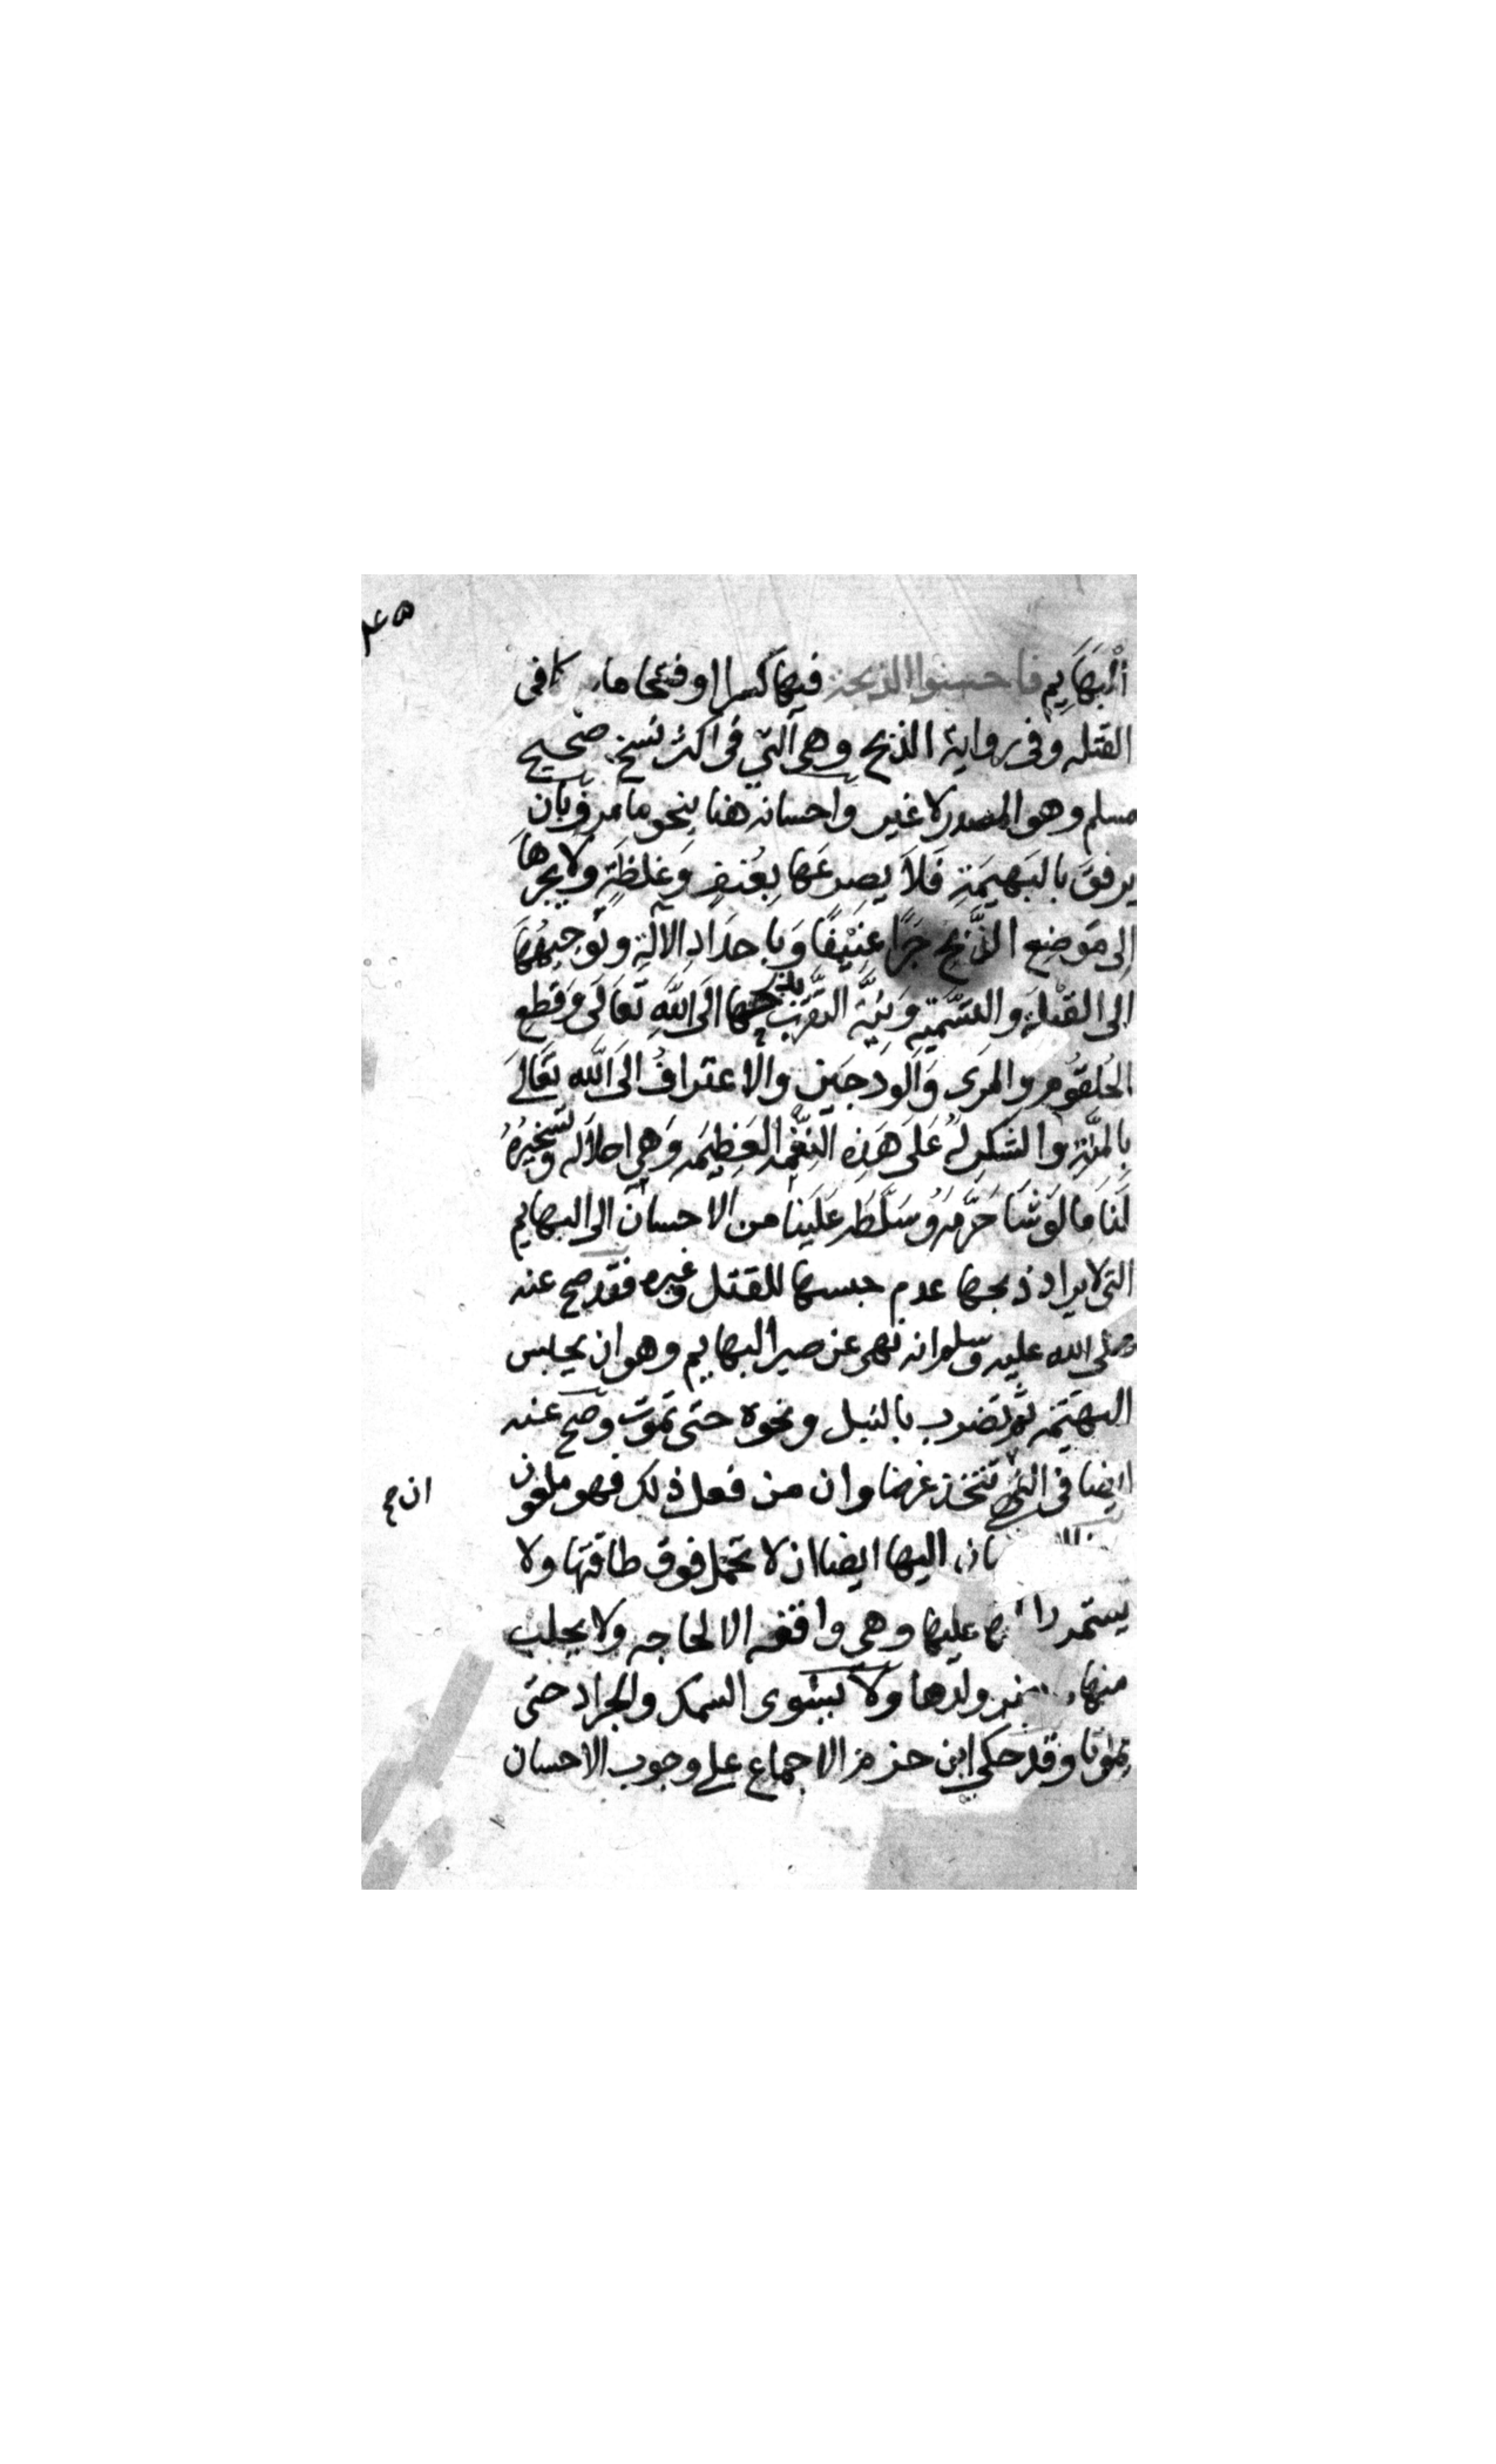 البَهَايِم فاحسنوا الذبحة فيها كسرا وفتحا ما في
القتله وفي رواية الذبح وهي التي في اكثر نسخ صحيح
مسلم وهو المصدر لا غير واحسانه هنا بنحو ما مر وبان
يرفق بالبَهيمَةِ فَلاَ يصرعَها بِعُنفٍ وَغلظَةٍ ولا يجرهَا
اِلى مَوضِع الذَّبحِ جَرًّا عنِيْفًا وَباحدَادِ الالَةِ وتَوجيهُهَا
الى القبْلة والتسَّميه وَنِيَّة التَّقرّب بذبحها الَى اللهِ تَعَالَى وَقطع
الحُلقُوم والمرَى وَالودَجَين والاعترافُ الَى الله تَعَالَ
بِالمِنَّةِ والشكرِ لهُ عَلَى هَذِه النِّعْمَه العَظِيمَه وَهي احلاَله وتسخيرُهُ
لَنَا مَا لَو شَا حَرَّمَهُ وسَلَّطَه عَلَينَا من الاحسان الى البهايم
التي لا يراد ذبحها عدم حبسها للقتل وغيره فقد صح عنه
صلى الله عليه وسلم انه نهى عن صبر البهايم وهو ان يحبس
البهيمَه ثم تضرب بالنبل ونحوه حتى تموت وصح عنه
ايضا في النهي تتخذ غرضا وان من فعل ذلك فهو ملعون
ان ح
اليها ايضا ان لا تحمل فوق طاقتها ولا
يستمر عليها وهي واقفه الا لحاجه ولا يحلب
منها ولدها ولا يشوى السمك والجراد حتى
يموتا وقد حكى ابن حزم الاجماع على وجوب الاحسان